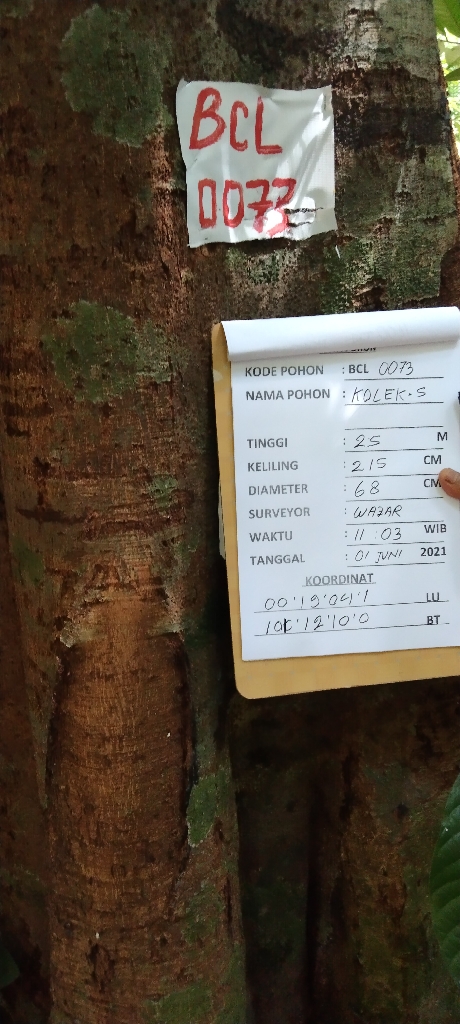 BCL
0073
KODE POHON : BCL 0073
NAMA POHON : KOLEK-S
TINGGI : 25 M
KELILING : 215 CM
DIAMETER : 68 CM
SURVEYOR : WAZAR
WAKTU : 11:03 WIB
TANGGAL : 01 JUNI 2021
KOORDINAT
00°19'04'1 LU
BT